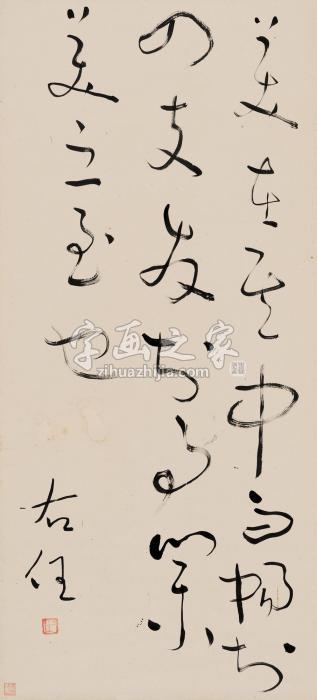 美在其中而暢於
四支發於事業
美之至也
右任
字画之家
zihuazhijia.com